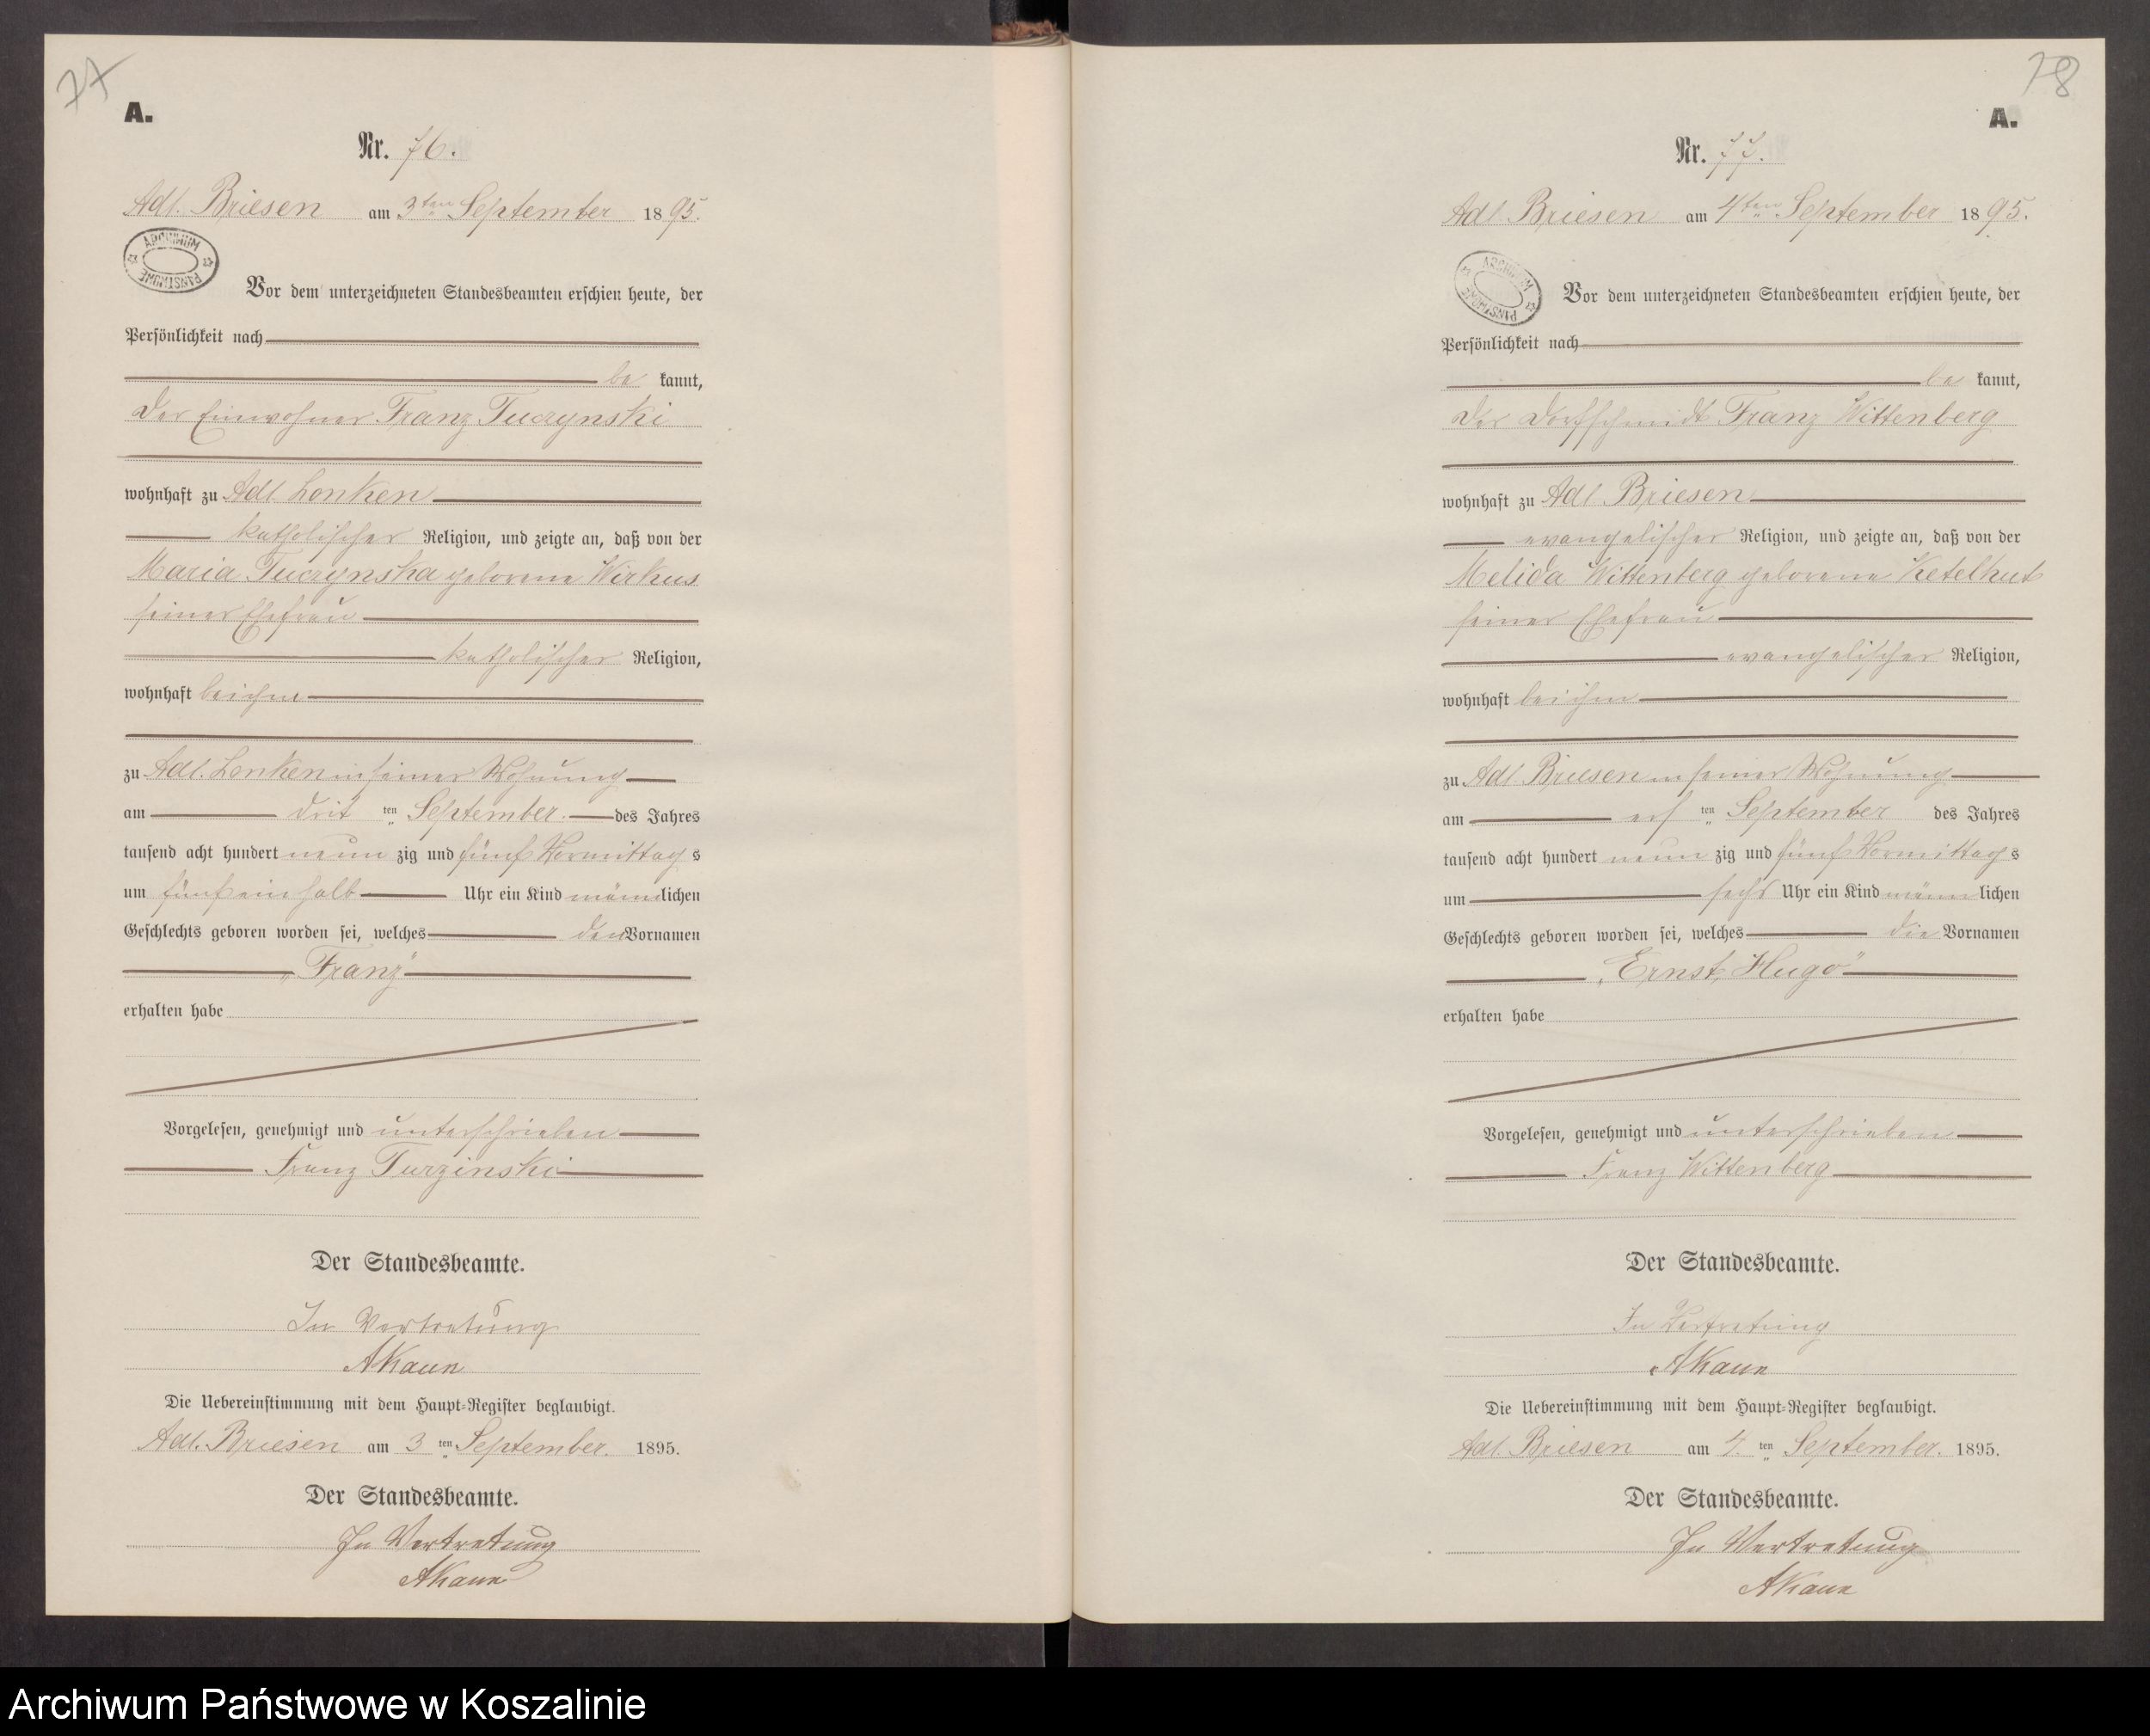 77
A.
Nr. 76.
Adl. Briesen am 3ten September 1895.
ARCHIWUM PAŃSTWOWE
Vor dem unterzeichneten Standesbeamten erschien heute, der
Persönlichkeit nach
be kannt,
der Einwohner Franz Tuczynski
wohnhaft zu Adl. Lonken
katholischer Religion, und zeigte an, daß von der
Maria Tuczynska geborene Wirkus
seiner Ehefrau
katholischer Religion,
wohnhaft bei ihm
zu Adl. Lonken in seiner Wohnung
am drit ten September des Jahres
tausend acht hundert neun zig und fünf Vormittag s
um fünf ein halb Uhr ein Kind männlichen
Geschlechts geboren worden sei, welches den Vornamen
„Franz"
erhalten habe
Vorgelesen, genehmigt und unterschrieben
Franz Turzinski
Der Standesbeamte.
In Vertretung
AKaun
Die Uebereinstimmung mit dem Haupt-Register beglaubigt.
Adl. Briesen am 3 ten September. 1895.
Der Standesbeamte.
In Vertretung
AKaun
78
A.
Nr. 77.
Adl. Briesen am 4ten September 1895.
ARCHIWUM PAŃSTWOWE
Vor dem unterzeichneten Standesbeamten erschien heute, der
Persönlichkeit nach
be kannt,
der Dorfschmidt Franz Wittenberg
wohnhaft zu Adl. Briesen
evangelischer Religion, und zeigte an, daß von der
Melida Wittenberg geborene Ketelhut
seiner Ehefrau
evangelischer Religion,
wohnhaft bei ihm
zu Adl. Briesen in seiner Wohnung
am ers ten September des Jahres
tausend acht hundert neun zig und fünf Vormittag s
um sechs Uhr ein Kind männ lichen
Geschlechts geboren worden sei, welches die Vornamen
„Ernst, Hugo"
erhalten habe
Vorgelesen, genehmigt und unterschrieben
Franz Wittenberg
Der Standesbeamte.
In Vertretung
AKaun
Die Uebereinstimmung mit dem Haupt-Register beglaubigt.
Adl. Briesen am 4. ten September. 1895.
Der Standesbeamte.
In Vertretung
AKaun
Archiwum Państwowe w Koszalinie